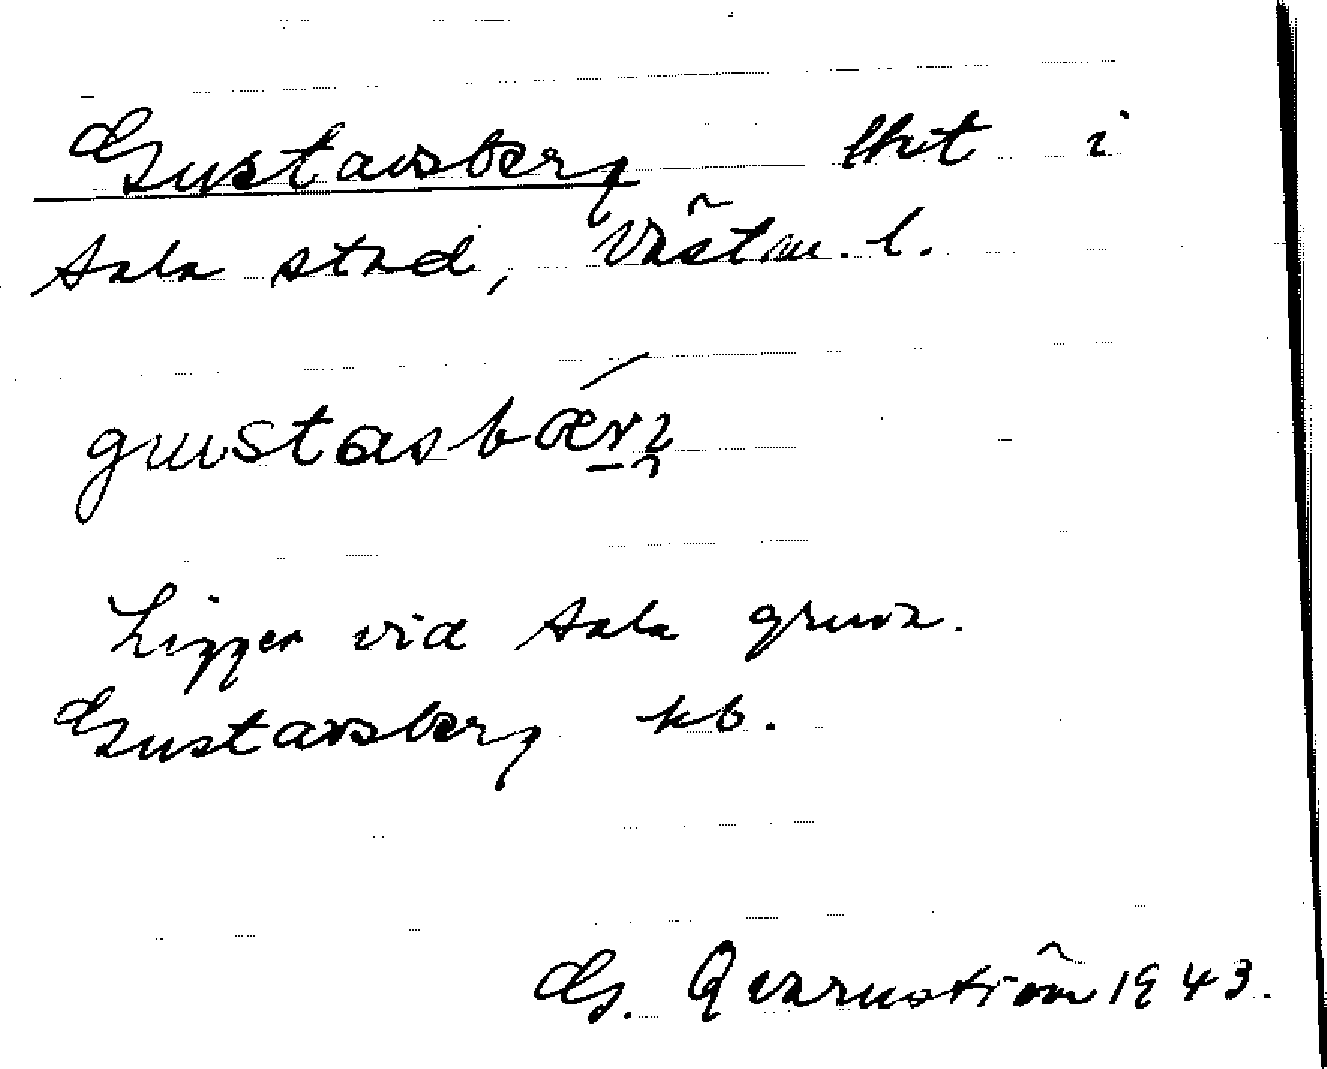 Gustavsberg lht i
Sala stad, Västm. l.
gustasbærȷ
Ligger vid Sala gruva.
Gustavsberg kb.
G. Qvarnström 1943.